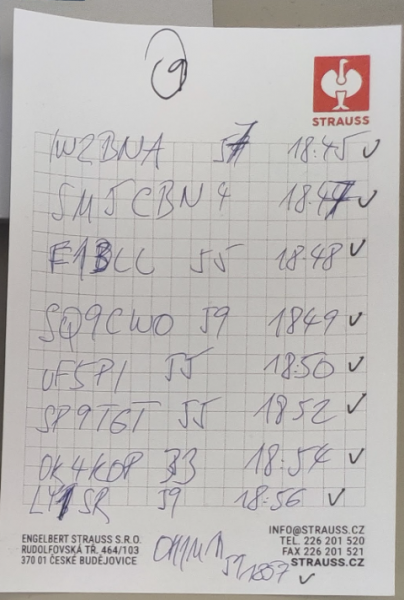 9
STRAUSS
IW2BNA 57 18:45 ✓
SM5CBN 4 18.47 ✓
F1BLL 55 18.48 ✓
SQ9CWO 59 1849 ✓
UF5PI 55 18:50 ✓
SP9TGT 55 1852 ✓
OK4KOP 33 18:54 ✓
LY1SR 59 18:56 ✓
59 1857 ✓
ENGELBERT STRAUSS S.R.O.
RUDOLFOVSKÁ TŘ. 464/103
370 01 ČESKÉ BUDĚJOVICE
INFO@STRAUSS.CZ
TEL. 226 201 520
FAX 226 201 521
STRAUSS.CZ